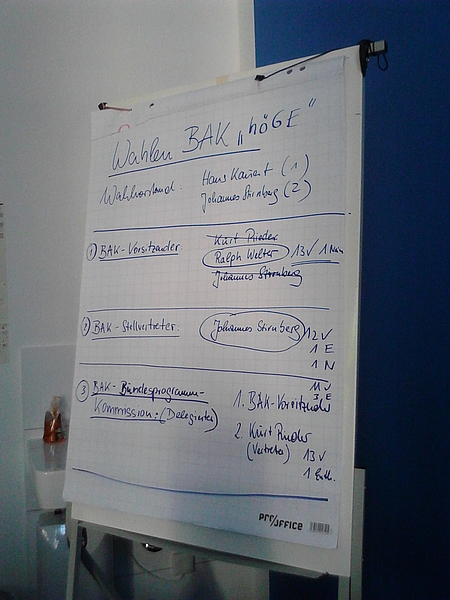 Wahlen BAK „höGE"
Wahlvorstand: Hans Kaiert (1)
Johannes Stirnberg (2)
① BAK-Vorsitzender
Kurt Rieder
Ralph Welter 13 ✓ 1 Nein
Johannes Stirnberg
② BAK-Stellvertreter: Johannes Stirnberg 12 ✓
1 E
1 N
③ BAK-Bundesprogramm-
Kommission: (Delegierter)
11 ✓
3 E
1. BAK-Vorsitzender
2. Kurt Rieder
(Vertreter) 13 ✓
1 Enth.
PRO/OFFICE